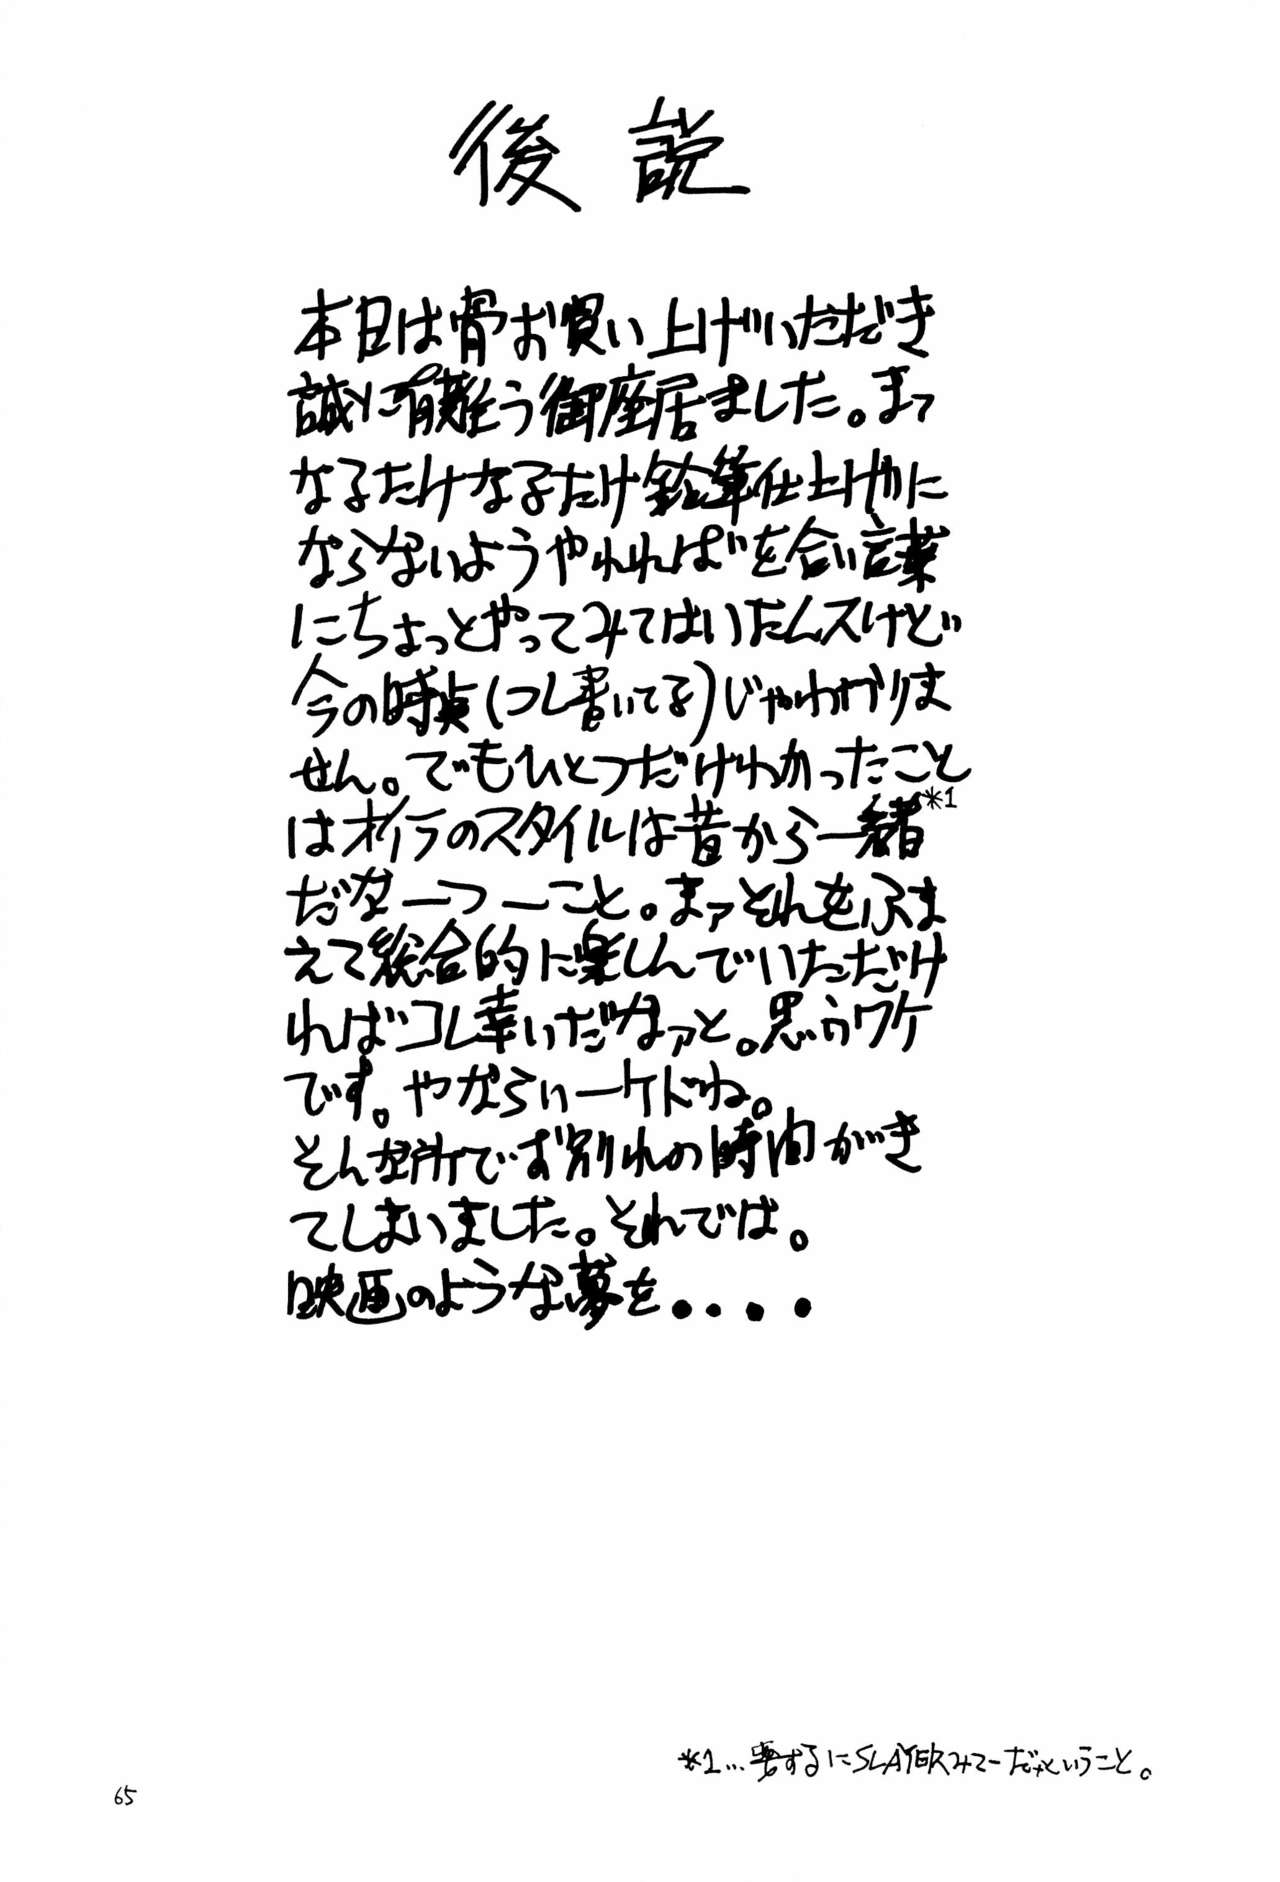 後説
本日は骨お買い上げいただき
誠に有難う御座居ました。まァ
なるたけなるたけ鉛筆仕上げやに
ならないようやれればを合い言葉
にちょっとやってみてはいたんスけど
今の時点(コレ書いてる)じゃわかりま
せん。でもひとつだけわかったこと
はオイラのスタイルは昔から一緒*1
だなーつーこと。まァそれをふま
えて総合的に楽しんでいただけ
ればコレ幸いだなァと。思うワケ
です。やならいーケドね。
そんな所でお別れの時間がき
てしまいました。それでは。
映画のような夢を....
*1...要するにSLAYERみてーだなということ。
65